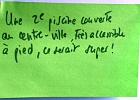 Une 2e piscine couverte
au centre-ville, très accessible
à pied, ce serait super !